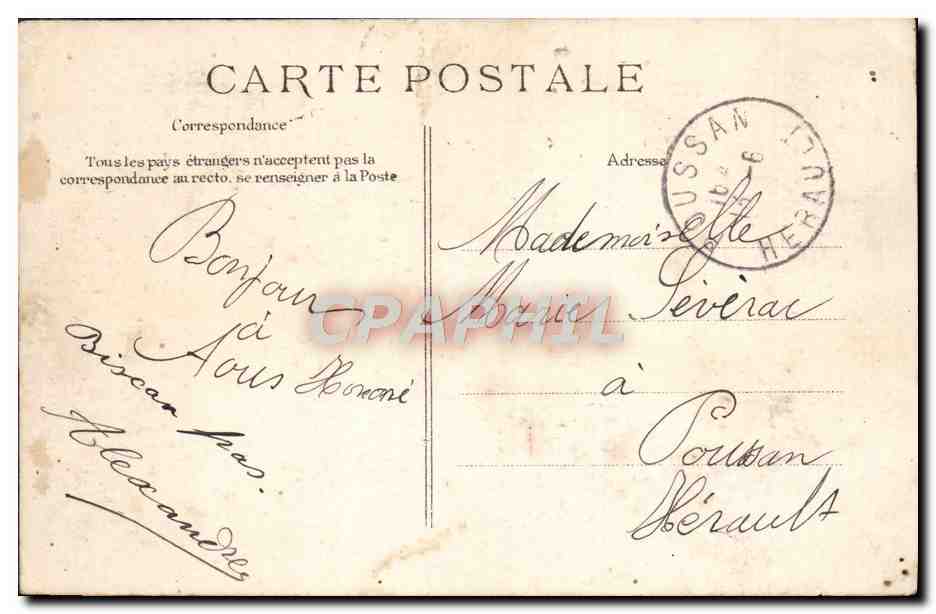 CARTE POSTALE
Correspondance
Tous les pays étrangers n'acceptent pas la
correspondance au recto, se renseigner à la Poste
Adresse
POUSSAN
HERAULT
Bonjour
à
Tous Honoré
Alexandre
Mademoiselle
Marie Sévérac
à
Poussan
Hérault
CPAPHIL